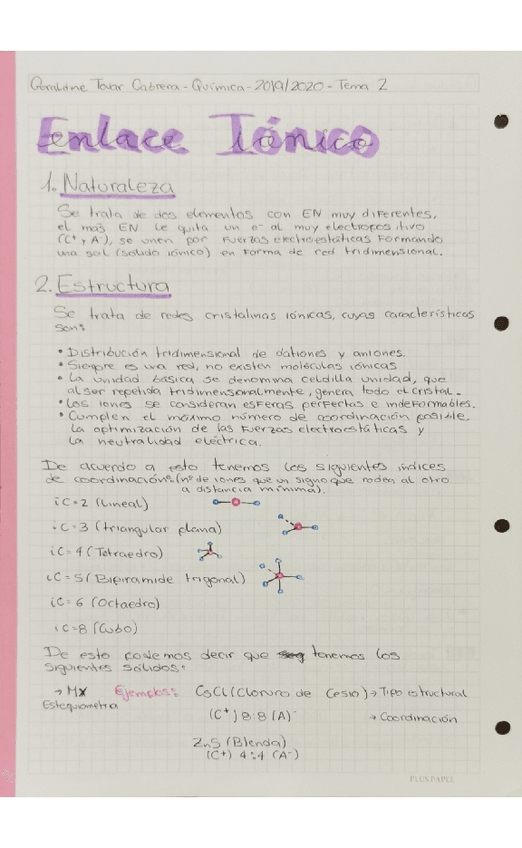 Geraldine Tovar Cabrera - Química - 2019/2020 - Tema 2
Enlace Iónico
1. Naturaleza
Se trata de dos elementos con EN muy diferentes,
el más EN le quita un e⁻ al muy electropositivo
(C⁺ y A⁻), se unen por fuerzas electroestáticas formando
una sal (solido iónico) en forma de red tridimensional.
2. Estructura
Se trata de redes cristalinas iónicas, cuyas características
son:
• Distribución tridimensional de cationes y aniones.
• Siempre es una red, no existen moléculas iónicas
• La unidad básica se denomina celdilla unidad, que
al ser repetida tridimensionalmente, genera todo el cristal.
• Los iones se consideran esferas perfectas e indeformables.
• Cumplen el máximo número de coordinación posible.
La optimización de las fuerzas electroestáticas y
la neutralidad eléctrica.
De acuerdo a esto tenemos los siguientes índices
de coordinación: (nº de iones que un signo que rodea al otro
a distancia mínima).
iC=2 (Lineal)
iC=3 (triangular plana)
iC=4 (Tetraedro)
iC=5 (Bipiramide trigonal)
iC=6 (Octaedro)
iC=8 (Cubo)
De esto podemos decir que tenemos los
siguientes sólidos:
→ MX Ejemplos: CsCl (Cloruro de Cesio) → Tipo estructural
Estequiometría
(C⁺) 8:8 (A⁻) → Coordinación
ZnS (Blenda)
(C⁺) 4:4 (A⁻)
PLUS PAPEL